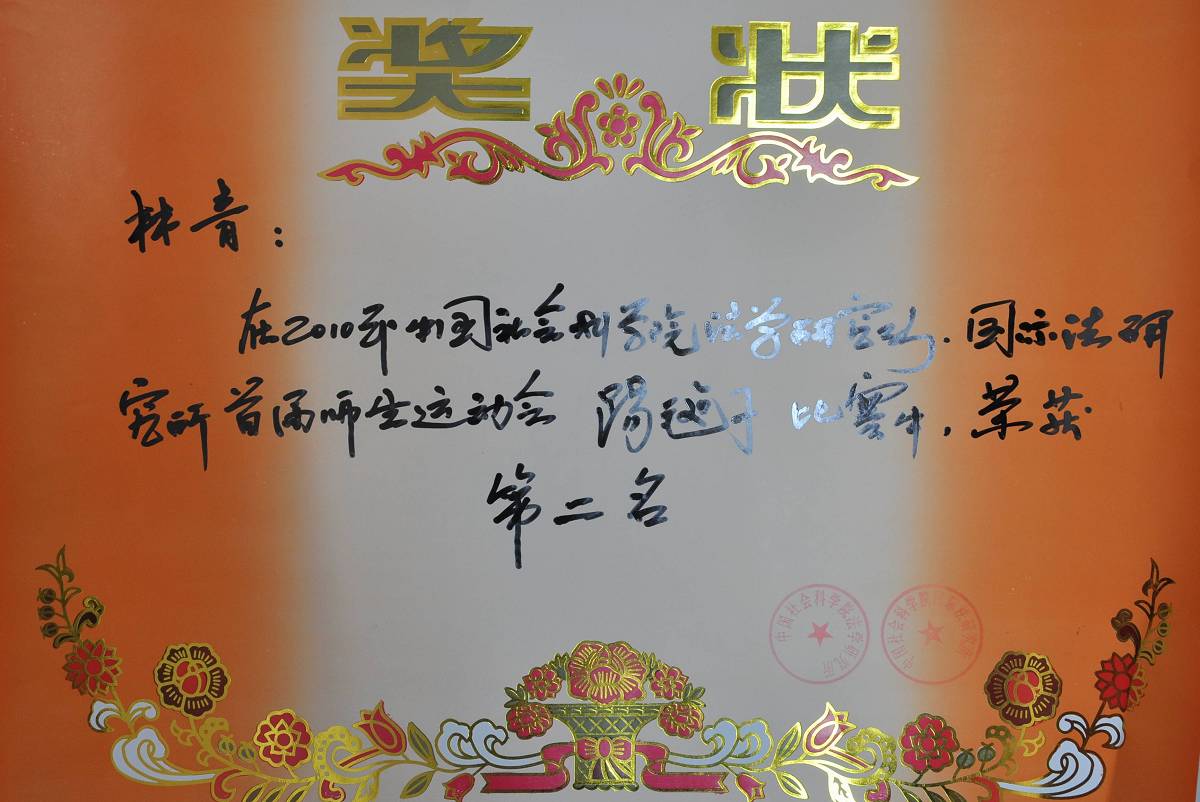 奖 状
林青：
在2010年中国社会科学院法学研究所、国际法研
究所首届师生运动会 踢毽子 比赛中，荣获
第二名
中国社会科学院法学研究所
中国社会科学院国际法研究所